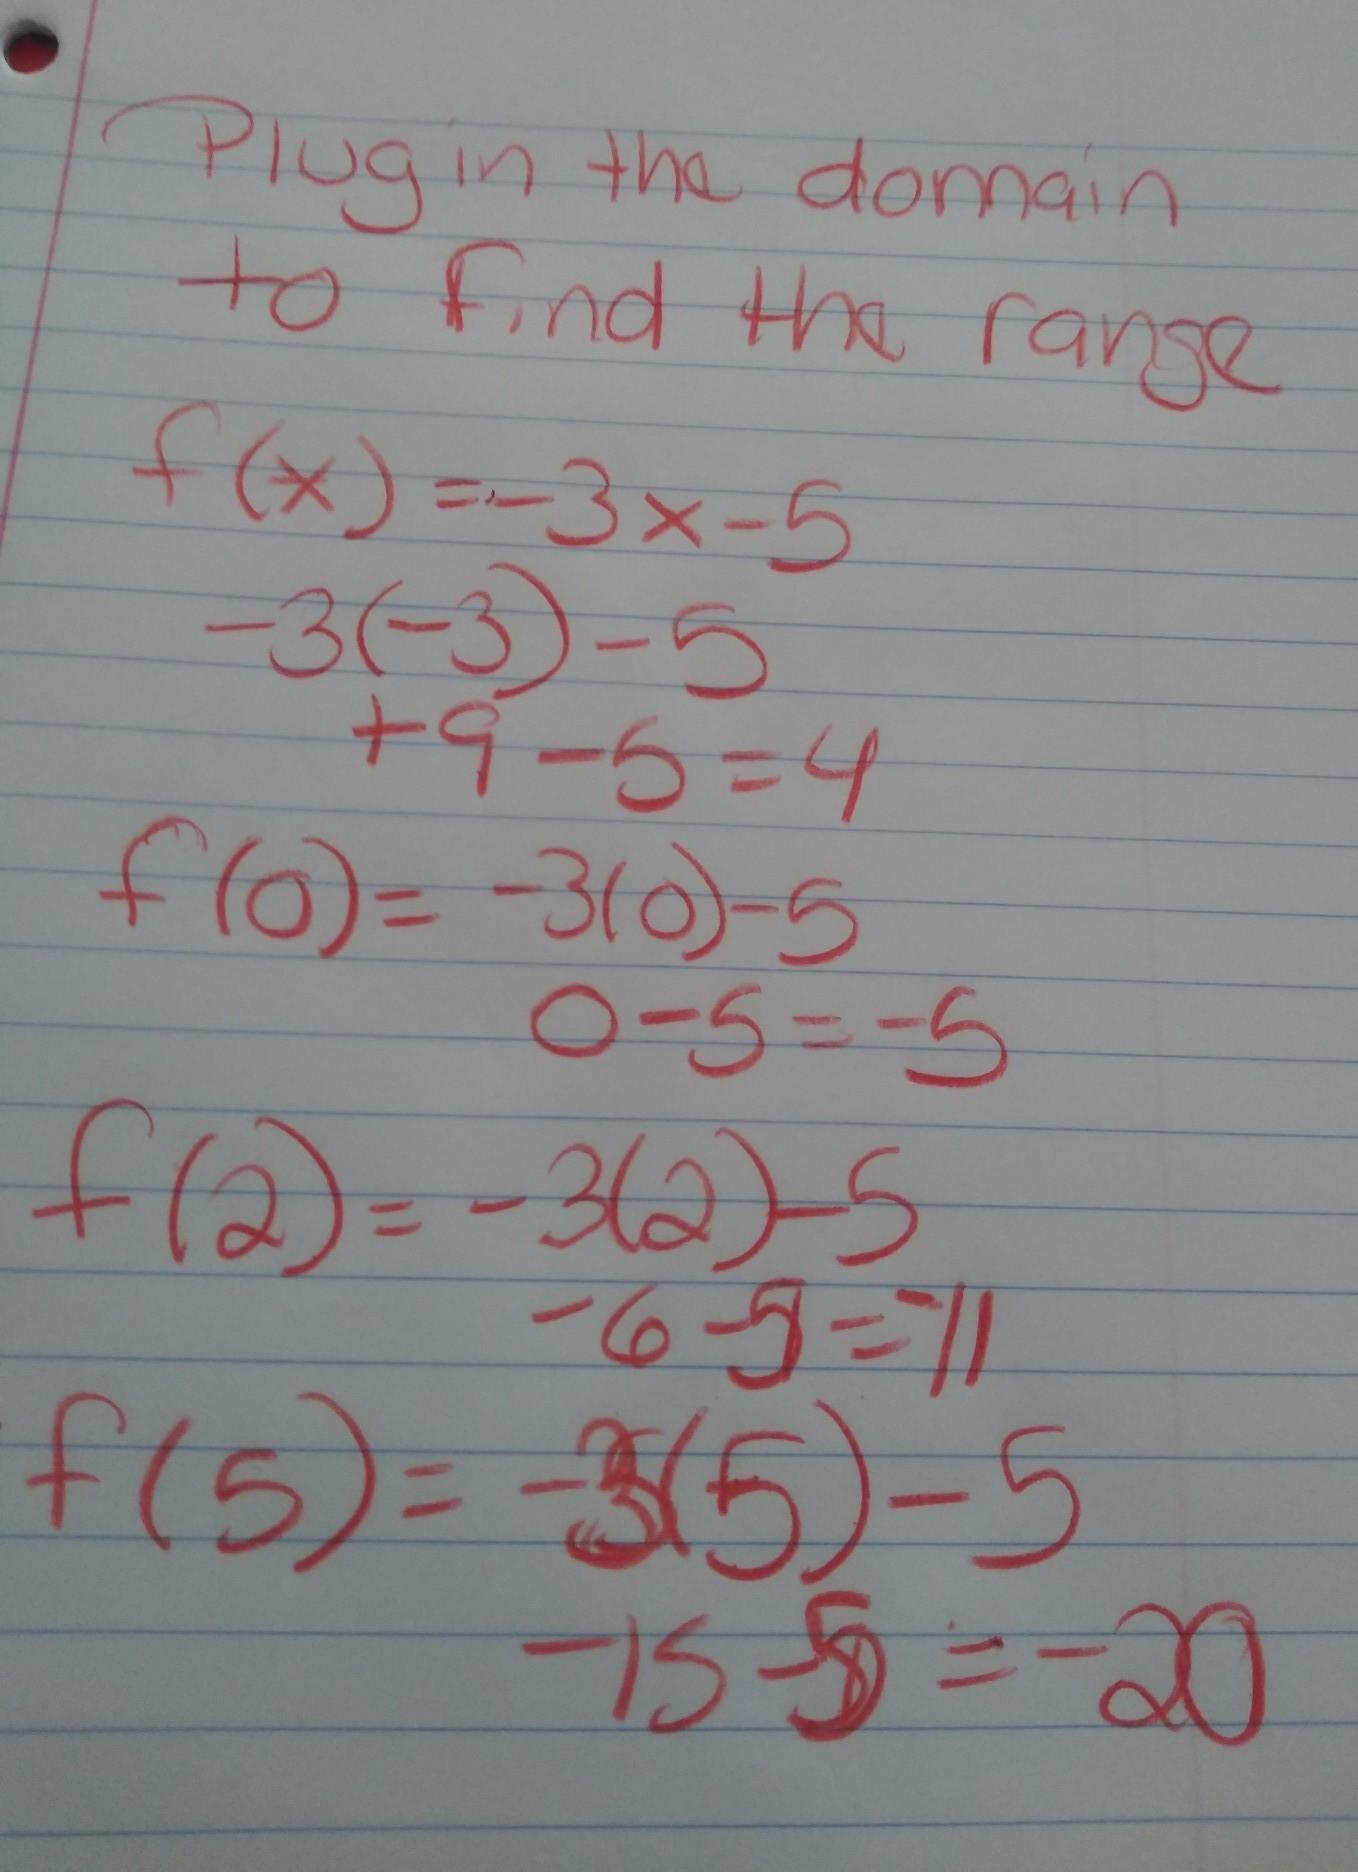 Plug in the domain
to find the range
f(x) = -3x-5
-3(-3)-5
+9 -5=4
f(0)= -3(0)-5
0-5=-5
f(2)= -3(2)-5
-6-5=-11
f(5)= -3(5)-5
-15-5 = -20